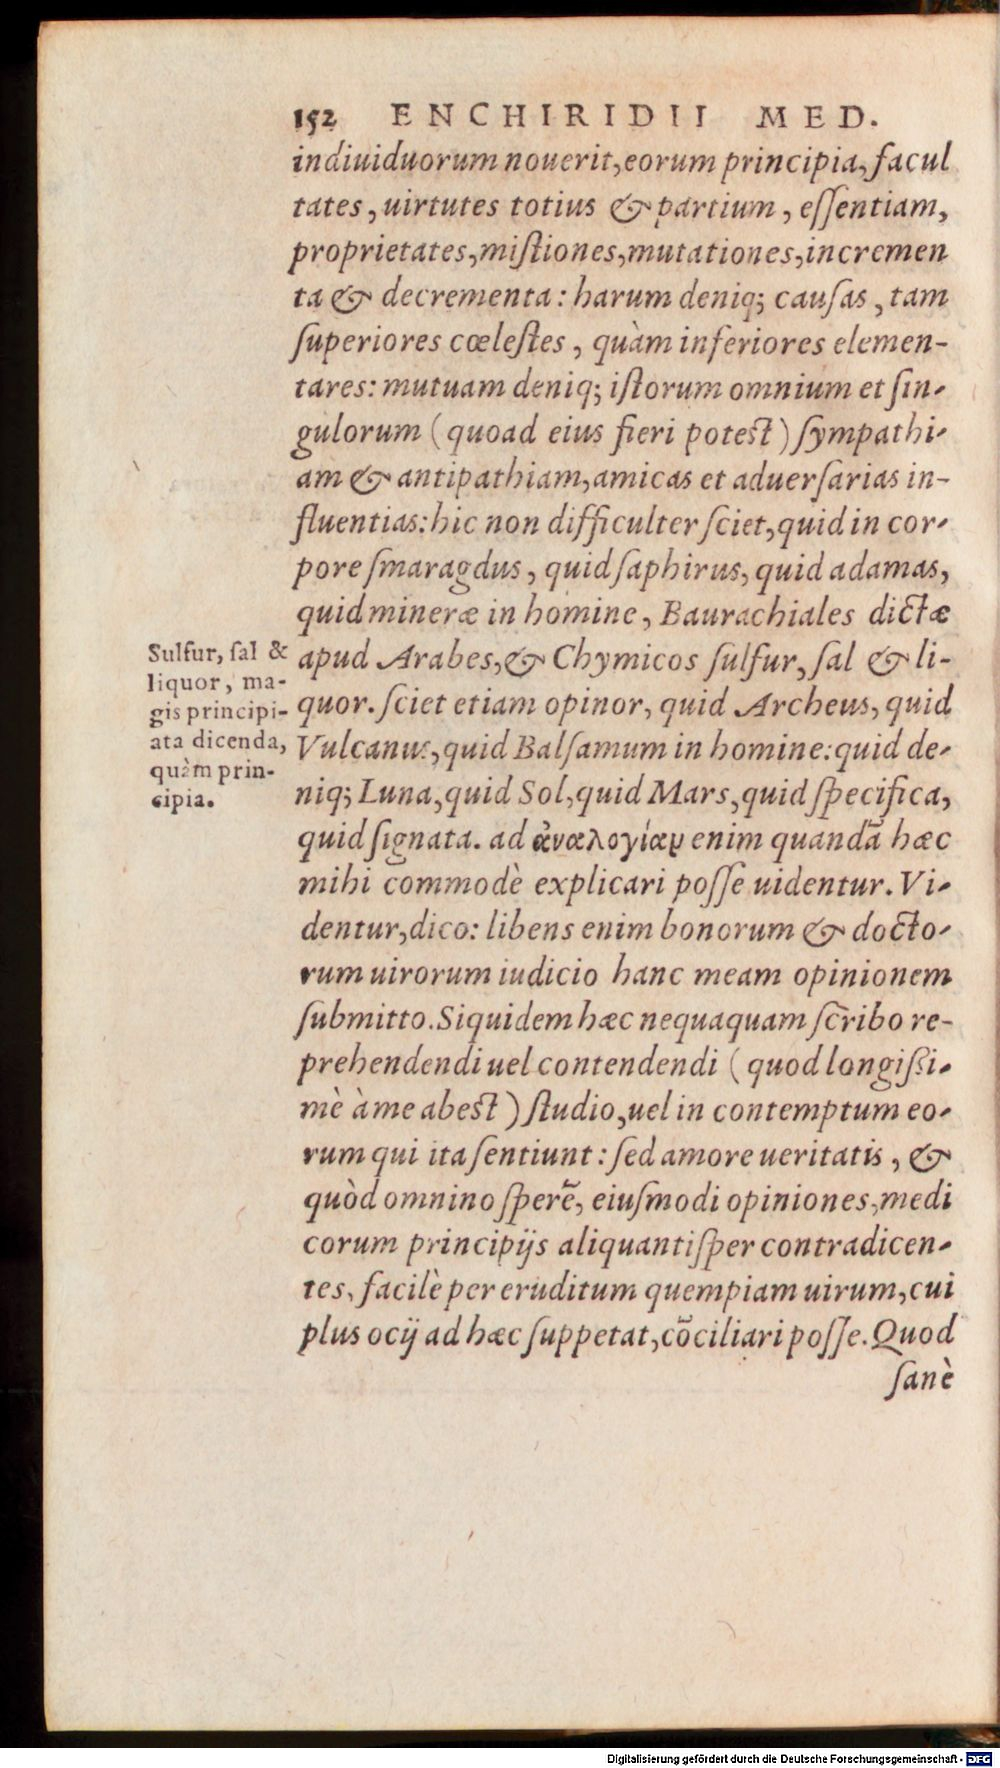 152 ENCHIRIDII MED.
indiuiduorum nouerit, eorum principia, facul
tates, uirtutes totius & partium, eſſentiam,
proprietates, miſtiones, mutationes, incremen
ta & decrementa: harum deniq; cauſas, tam
ſuperiores cœleſtes, quàm inferiores elemen-
tares: mutuam deniq; iſtorum omnium et ſin-
gulorum (quoad eius fieri poteſt) ſympathi-
am & antipathiam, amicas et aduerſarias in-
fluentias: hic non difficulter ſciet, quid in cor-
pore ſmaragdus, quid ſaphirus, quid adamas,
quid mineræ in homine, Baurachiales dictæ
apud Arabes, & Chymicos ſulfur, ſal & li-
quor. ſciet etiam opinor, quid Archeus, quid
Vulcanus, quid Balſamum in homine: quid de-
niq; Luna, quid Sol, quid Mars, quid ſpecifica,
quid ſignata. ad ἀναλογίαν enim quandā hæc
mihi commodè explicari poſſe uidentur. Vi-
dentur, dico: libens enim bonorum & docto-
rum uirorum iudicio hanc meam opinionem
ſubmitto. Siquidem hæc nequaquam ſcribo re-
prehendendi uel contendendi (quod longiſſi-
mè à me abeſt) ſtudio, uel in contemptum eo-
rum qui ita ſentiunt: ſed amore ueritatis, &
quòd omnino ſperē, eiuſmodi opiniones, medi
corum principijs aliquantiſper contradicen-
tes, facilè per eruditum quempiam uirum, cui
plus ocij ad hæc ſuppetat, cōciliari poſſe. Quod
ſanè
Sulfur, ſal &
liquor, ma-
gis principi-
ata dicenda,
quàm prin-
cipia.
Digitalisierung gefördert durch die Deutsche Forschungsgemeinschaft - DFG